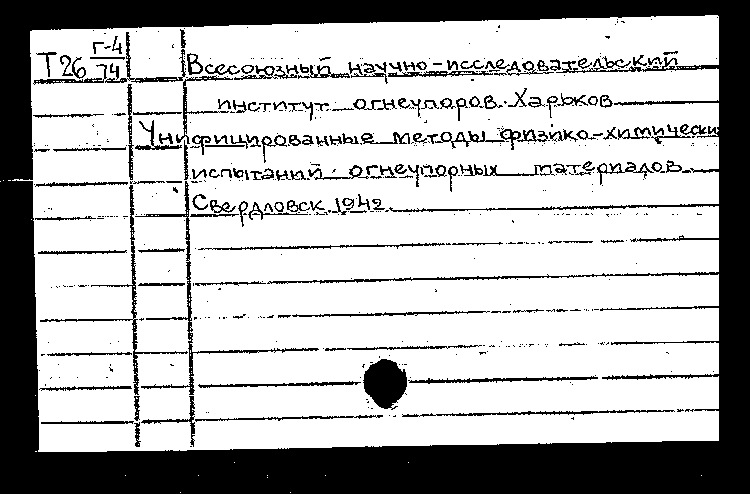 Т26 Г-4/74
Всесоюзный научно-исследовательский
институт огнеупоров. Харьков
Унифицированные методы физико-химически
испытаний огнеупорных материалов
Свердловск, 1942.